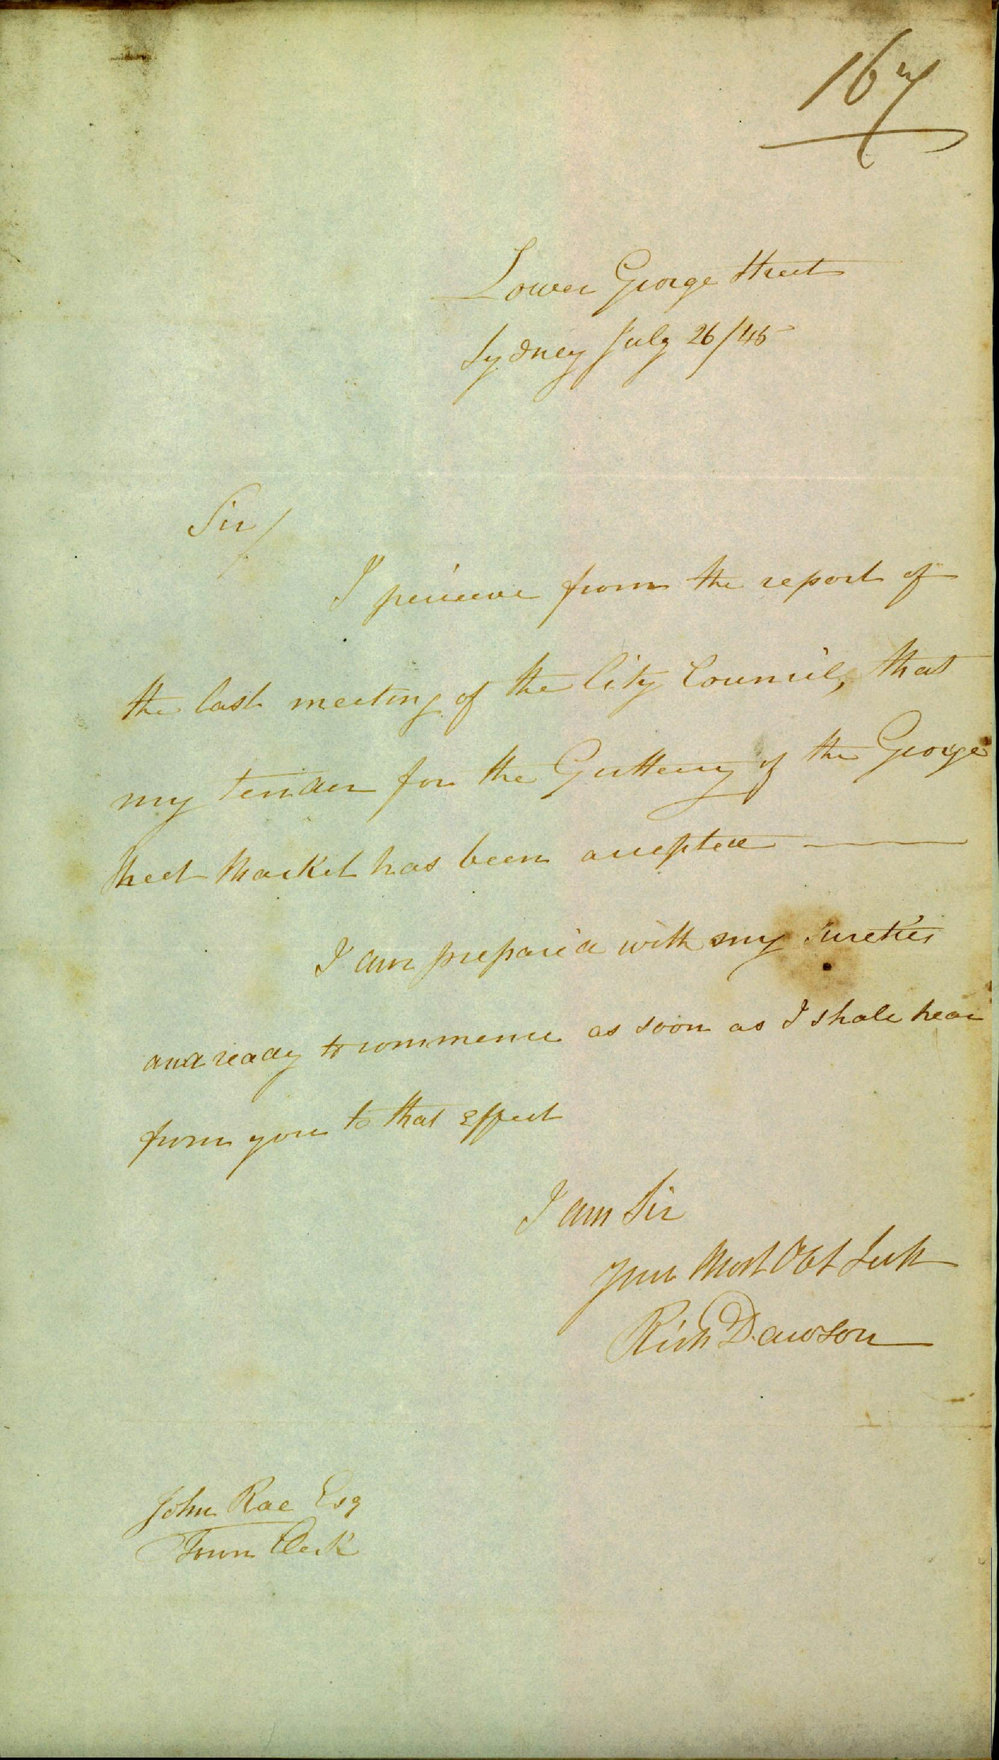 167
Lower George Street
Sydney July 26/45
Sir/
I perceive from the report of
the last meeting of the City Council, that
my tender for the Guttering of the George
Street Market has been accepted
I am prepared with my Sureties
and ready to commence as soon as I shall hear
from you to that effect
I am Sir
Your Most Obt Servt
Richd Dawson
John Rae Esq
Town Clerk